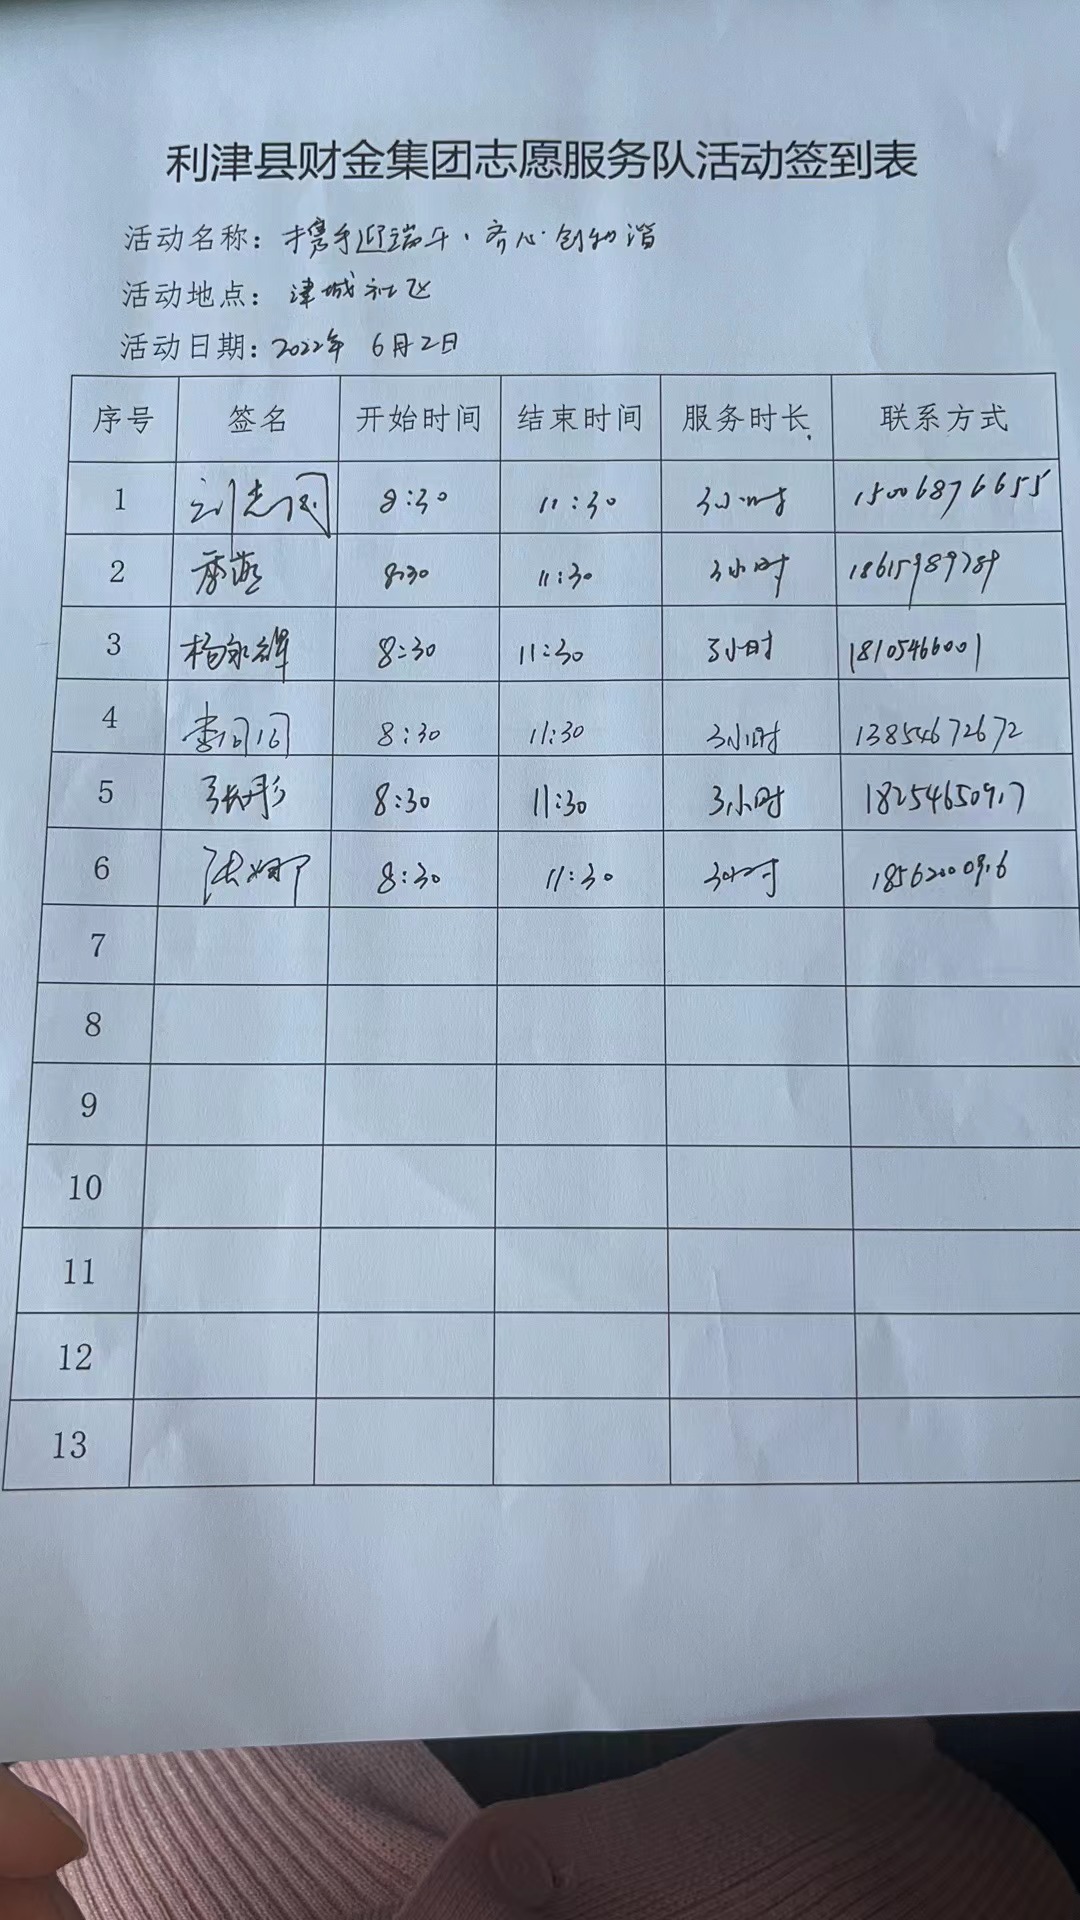 利津县财金集团志愿服务队活动签到表
活动名称：携手迎端午·齐心创和谐
活动地点：津城社区
活动日期：2022年 6月2日
序号 签名 开始时间 结束时间 服务时长 联系方式
1 8:30 11:30 3小时 15006876655
2 8:30 11:30 3小时 18615989789
3 杨永辉 8:30 11:30 3小时 18105466001
4 李闫闫 8:30 11:30 3小时 13854672672
5 张彤 8:30 11:30 3小时 18254650917
6 张娜 8:30 11:30 3小时 18562000916
7
8
9
10
11
12
13